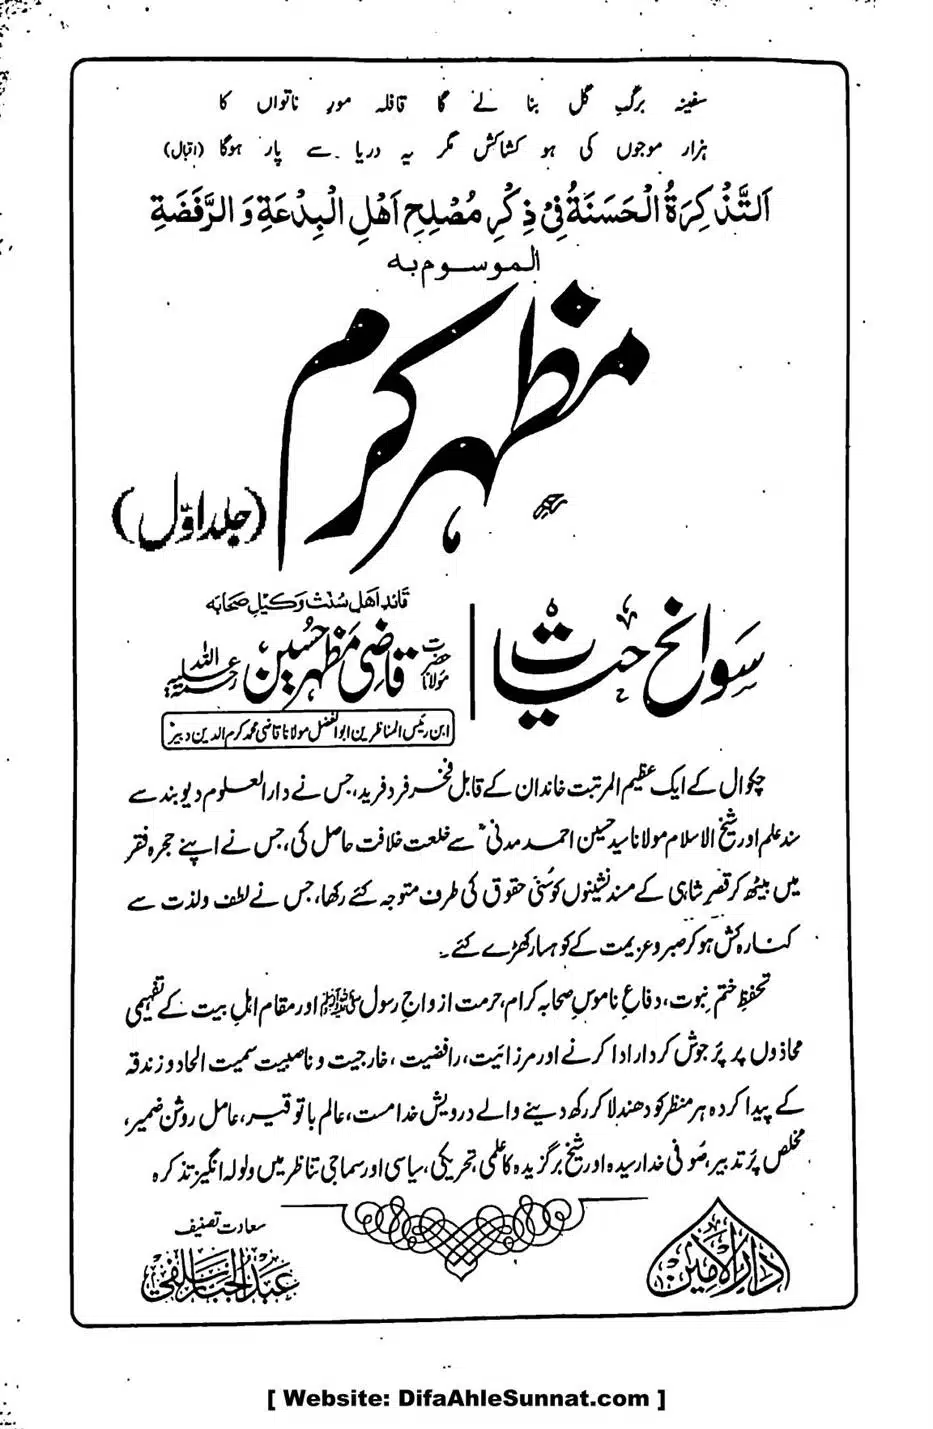 سفینہ برگِ گل بنا لے گا قافلہ مورِ ناتواں کا
ہزار موجوں کی ہو کشاکش مگر یہ دریا سے پار ہوگا (اقبال)
اَلتَّذْكِرَةُ الْحَسَنَةُ فِيْ ذِكْرِ مُصْلِحِ اَهْلِ الْبِدْعَةِ وَالرَّفَضَةِ
الموسوم بہ
مظہر کرم
(جلد اوّل)
سوانح حیات
قائد اہل سنت وکیل صحابہ
حضرت مولانا قاضی مظہر حسین رحمۃ اللہ علیہ
ابن رئیس المناظرین ابوالفضل مولانا قاضی محمد کرم الدین دبیرؒ
چکوال کے ایک عظیم المرتبت خاندان کے قابل فخر فرد فرید، جس نے دارالعلوم دیوبند سے
سند علم اور شیخ الاسلام مولانا سید حسین احمد مدنیؒ سے خلعت خلافت حاصل کی، جس نے اپنے حجرہ فقر
میں بیٹھ کر قصرِ شاہی کے مسند نشینوں کو سُنی حقوق کی طرف متوجہ کئے رکھا، جس نے لطف ولذت سے
کنارہ کش ہو کر صبر و عزیمت کے کوہسار کھڑے کئے۔
تحفظِ ختم نبوت، دفاعِ ناموسِ صحابہ کرام، حرمت ازواجِ رسول ﷺ اور مقام اہلِ بیت کے تفہیمی
محاذوں پر پُرجوش کردار ادا کرنے اور مرزائیت، رافضیت، خارجیت و ناصبیت سمیت الحاد و زندقہ
کے پیدا کردہ ہر منظر کو دھندلا کر رکھ دینے والے درویش خدامست، عالم باتوقیر، عامل روشن ضمیر،
مخلص پُرتدبیر، صُوفی خدارسیدہ اور شیخ برگزیدہ کا علمی، تحریکی، سیاسی اور سماجی تناظر میں ولولہ انگیز تذکرہ
سعادت تصنیف
عبدالجبار سلفی
دارالامین
[ Website: DifaAhleSunnat.com ]